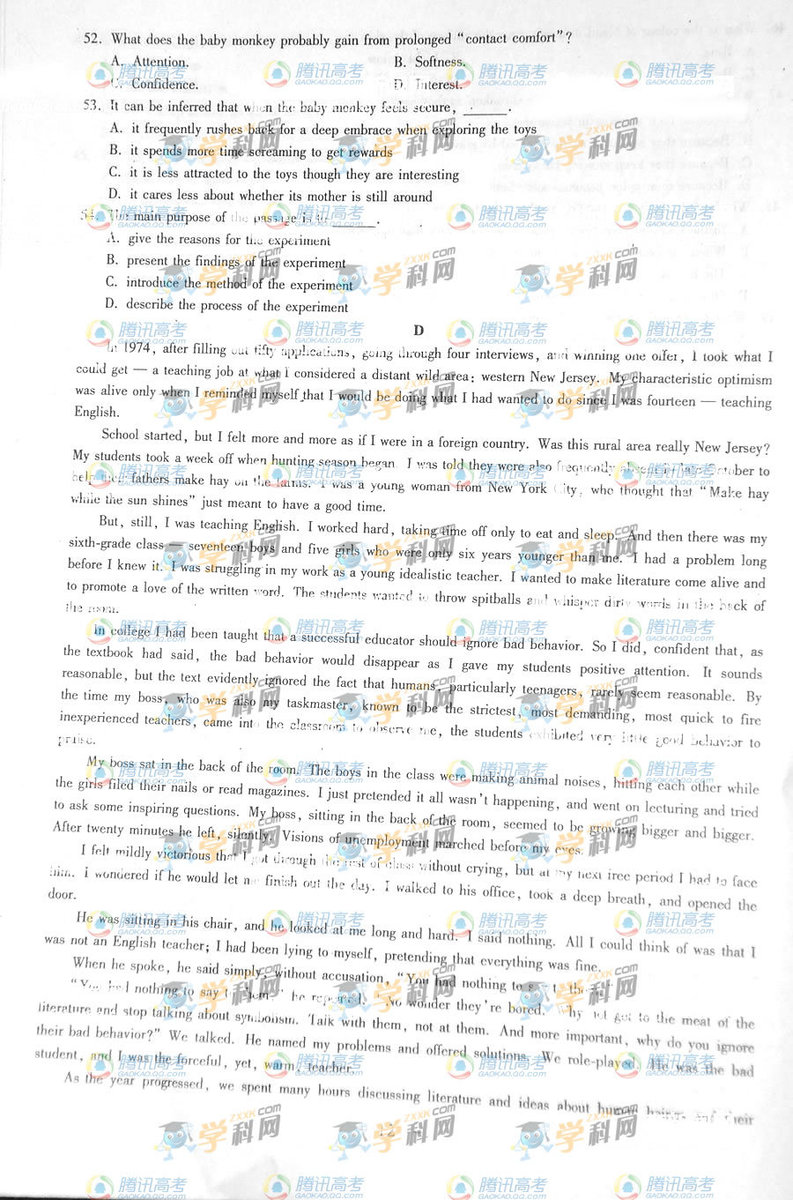 52. What does the baby monkey probably gain from prolonged "contact comfort"?
A. Attention. B. Softness.
C. Confidence. D. Interest.
53. It can be inferred that when the baby monkey feels secure, ______.
A. it frequently rushes back for a deep embrace when exploring the toys
B. it spends more time screaming to get rewards
C. it is less attracted to the toys though they are interesting
D. it cares less about whether its mother is still around
54. The main purpose of the passage is to ______.
A. give the reasons for the experiment
B. present the findings of the experiment
C. introduce the method of the experiment
D. describe the process of the experiment
D
In 1974, after filling out fifty applications, going through four interviews, and winning one offer, I took what I
could get — a teaching job at what I considered a distant wild area: western New Jersey. My characteristic optimism
was alive only when I reminded myself that I would be doing what I had wanted to do since I was fourteen — teaching
English.
School started, but I felt more and more as if I were in a foreign country. Was this rural area really New Jersey?
My students took a week off when hunting season began. I was told they were also frequently absent in late October to
help their fathers make hay on the farms. I was a young woman from New York City, who thought that "Make hay
while the sun shines" just meant to have a good time.
But, still, I was teaching English. I worked hard, taking time off only to eat and sleep. And then there was my
sixth-grade class — seventeen boys and five girls who were only six years younger than me. I had a problem long
before I knew it. I was struggling in my work as a young idealistic teacher. I wanted to make literature come alive and
to promote a love of the written word. The students wanted to throw spitballs and whisper dirty words in the back of
the room.
In college I had been taught that a successful educator should ignore bad behavior. So I did, confident that, as
the textbook had said, the bad behavior would disappear as I gave my students positive attention. It sounds
reasonable, but the text evidently ignored the fact that humans, particularly teenagers, rarely seem reasonable. By
the time my boss, who was also my taskmaster, known to be the strictest, most demanding, most quick to fire
inexperienced teachers, came into the classroom to observe me, the students exhibited very little good behavior to
praise.
My boss sat in the back of the room. The boys in the class were making animal noises, hitting each other while
the girls filed their nails or read magazines. I just pretended it all wasn't happening, and went on lecturing and tried
to ask some inspiring questions. My boss, sitting in the back of the room, seemed to be growing bigger and bigger.
After twenty minutes he left, silently. Visions of unemployment marched before my eyes.
I felt mildly victorious that I got through the rest of class without crying, but at my next free period I had to face
him. I wondered if he would let me finish out the day. I walked to his office, took a deep breath, and opened the
door.
He was sitting in his chair, and he looked at me long and hard. I said nothing. All I could think of was that I
was not an English teacher; I had been lying to myself, pretending that everything was fine.
When he spoke, he said simply, without accusation, "You had nothing to say to them."
"You had nothing to say to them," he repeated. "No wonder they're bored. Why not get to the meat of the
literature and stop talking about symbolism. Talk with them, not at them. And more important, why do you ignore
their bad behavior?" We talked. He named my problems and offered solutions. We role-played. He was the bad
student, and I was the forceful, yet, warm, teacher.
As the year progressed, we spent many hours discussing literature and ideas about human beings and their
腾讯高考
GAOKAO.QQ.COM
学科网
ZXXK.COM